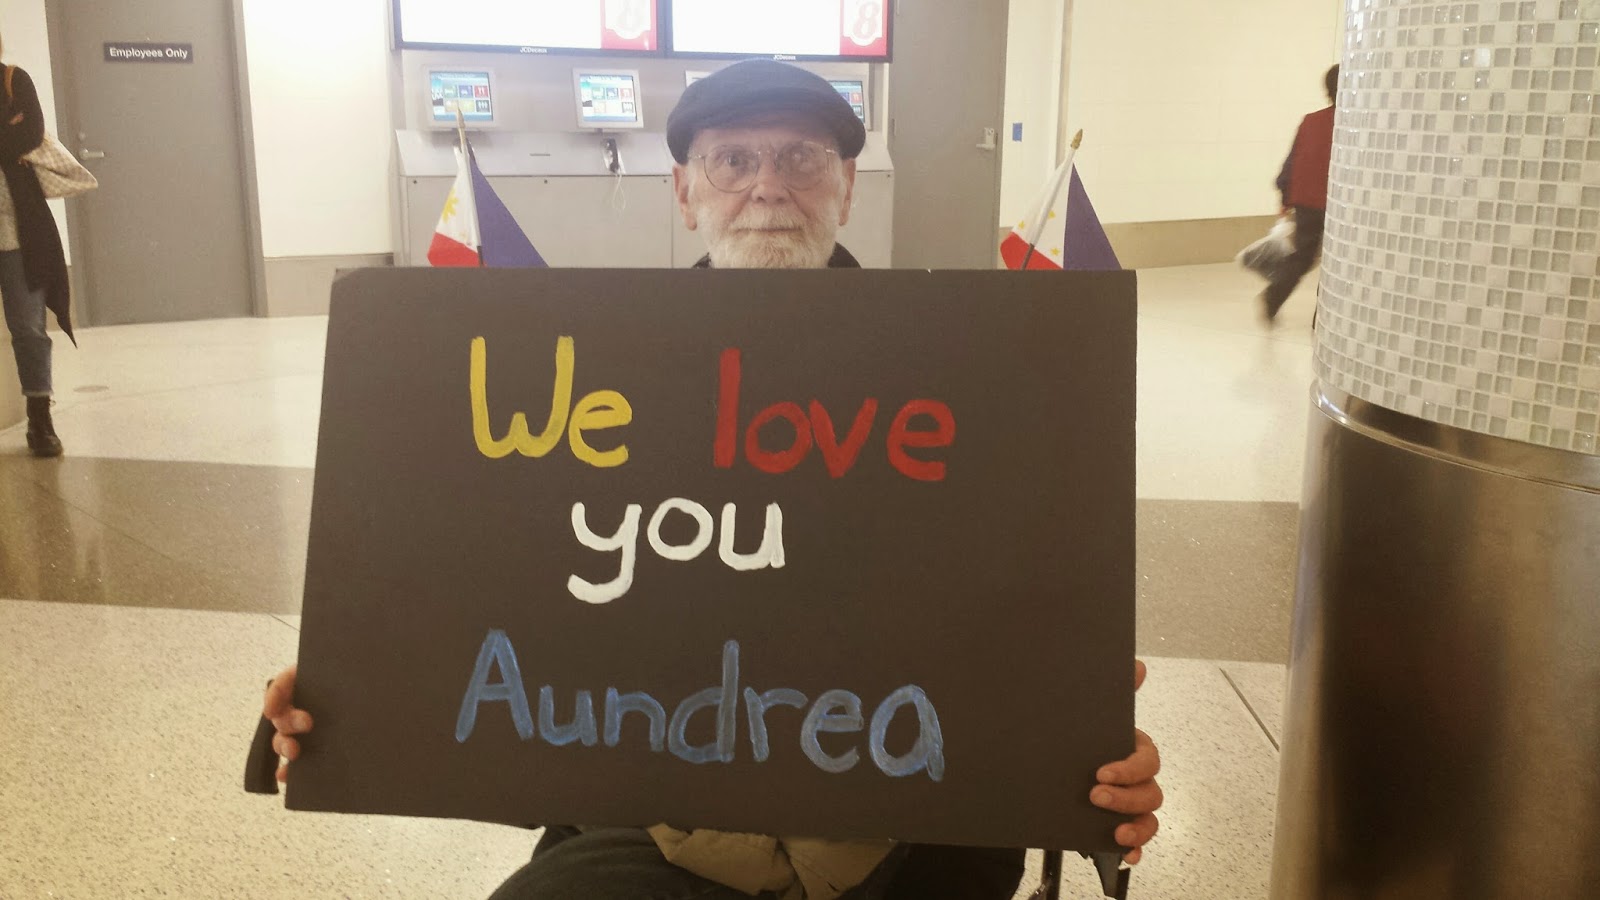 Employees Only
8
8
JCDecaux
JCDecaux
We love
you
Aundrea